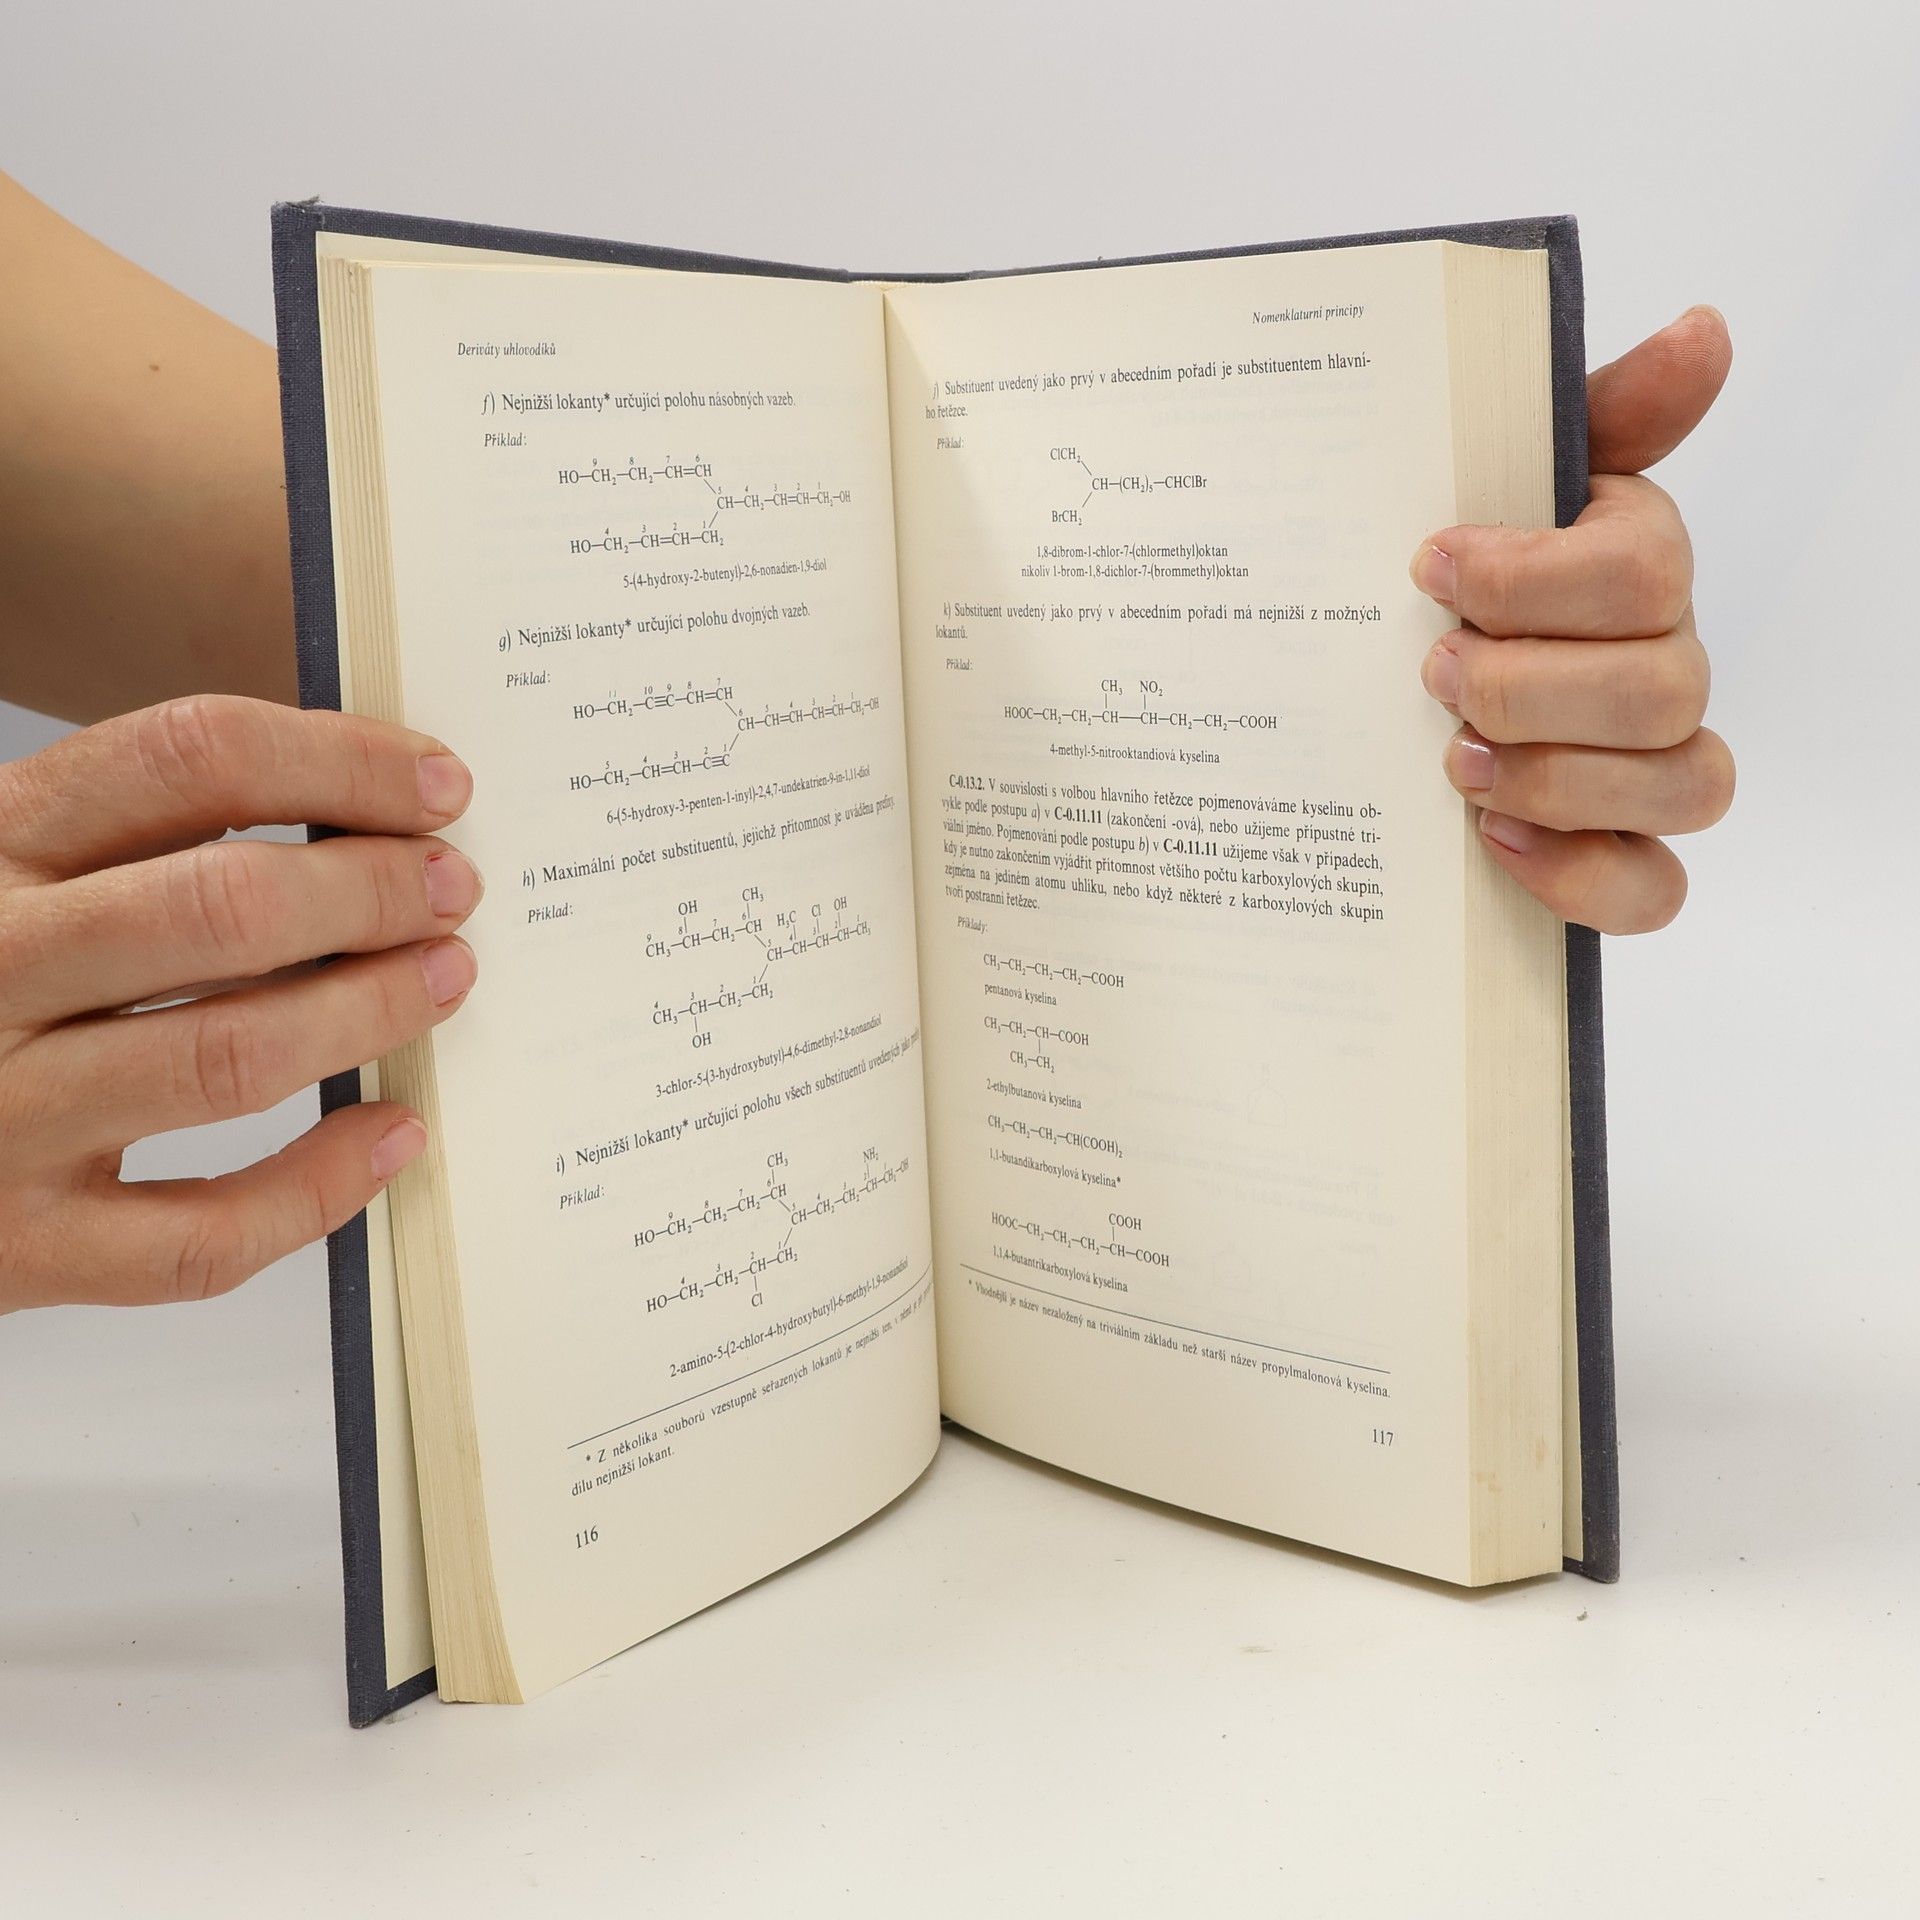 Deriváty uhlovodíků
f) Nejnižší lokanty* určující polohu násobných vazeb.
Příklad:
9 8 7 6
HO—CH₂—CH₂—CH=CH
5 4 3 2 1
CH—CH₂—CH=CH—CH₂—OH
4 3 2 1
HO—CH₂—CH=CH—CH₂
5-(4-hydroxy-2-butenyl)-2,6-nonadien-1,9-diol
g) Nejnižší lokanty* určující polohu dvojných vazeb.
Příklad:
11 10 9 8 7
HO—CH₂—C≡C—CH=CH
6 5 4 3 2 1
CH—CH=CH—CH=CH—CH₂—OH
5 4 3 2 1
HO—CH₂—CH=CH—C≡C
6-(5-hydroxy-3-penten-1-inyl)-2,4,7-undekatrien-9-in-1,11-diol
h) Maximální počet substituentů, jejichž přítomnost je uváděna prefixy.
Příklad:
OH CH₃
9 8 7 6
CH₃—CH—CH₂—CH H₃C Cl OH
5 4 3 2 1
CH—CH—CH—CH—CH₃
4 3 2 1
CH₃—CH—CH₂—CH₂
OH
3-chlor-5-(3-hydroxybutyl)-4,6-dimethyl-2,8-nonandiol
i) Nejnižší lokanty* určující polohu všech substituentů uvedených jako
Příklad:
CH₃ NH₂
9 8 7 6
HO—CH₂—CH₂—CH₂—CH
5 4 3 2 1
CH—CH₂—CH₂—CH—CH₂—OH
4 3 2 1
HO—CH₂—CH₂—CH—CH₂
Cl
2-amino-5-(2-chlor-4-hydroxybutyl)-6-methyl-1,9-nonandiol
* Z několika souborů vzestupně seřazených lokantů je nejnižší ten, v němž je
dílu nejnižší lokant.
116
Nomenklaturní principy
j) Substituent uvedený jako prvý v abecedním pořadí je substituentem hlavní-
ho řetězce.
Příklad:
ClCH₂
CH—(CH₂)₅—CHClBr
BrCH₂
1,8-dibrom-1-chlor-7-(chlormethyl)oktan
nikoliv 1-brom-1,8-dichlor-7-(brommethyl)oktan
k) Substituent uvedený jako prvý v abecedním pořadí má nejnižší z možných
lokantů.
Příklad:
CH₃ NO₂
HOOC—CH₂—CH₂—CH—CH—CH₂—CH₂—COOH
4-methyl-5-nitrooktandiová kyselina
C-0.13.2. V souvislosti s volbou hlavního řetězce pojmenováváme kyselinu ob-
vykle podle postupu a) v C-0.11.11 (zakončení -ová), nebo užijeme přípustné tri-
viální jméno. Pojmenování podle postupu b) v C-0.11.11 užijeme však v případech,
kdy je nutno zakončením vyjádřit přítomnost většího počtu karboxylových skupin,
zejména na jediném atomu uhlíku, nebo když některé z karboxylových skupin
tvoří postranní řetězec.
Příklady:
CH₃—CH₂—CH₂—CH₂—COOH
pentanová kyselina
CH₃—CH₂—CH—COOH
CH₃—CH₂
2-ethylbutanová kyselina
CH₃—CH₂—CH₂—CH(COOH)₂
1,1-butandikarboxylová kyselina*
COOH
HOOC—CH₂—CH₂—CH₂—CH—COOH
1,1,4-butantrikarboxylová kyselina
* Vhodnější je název nezaložený na triviálním základu než starší název propylmalonová kyselina.
117